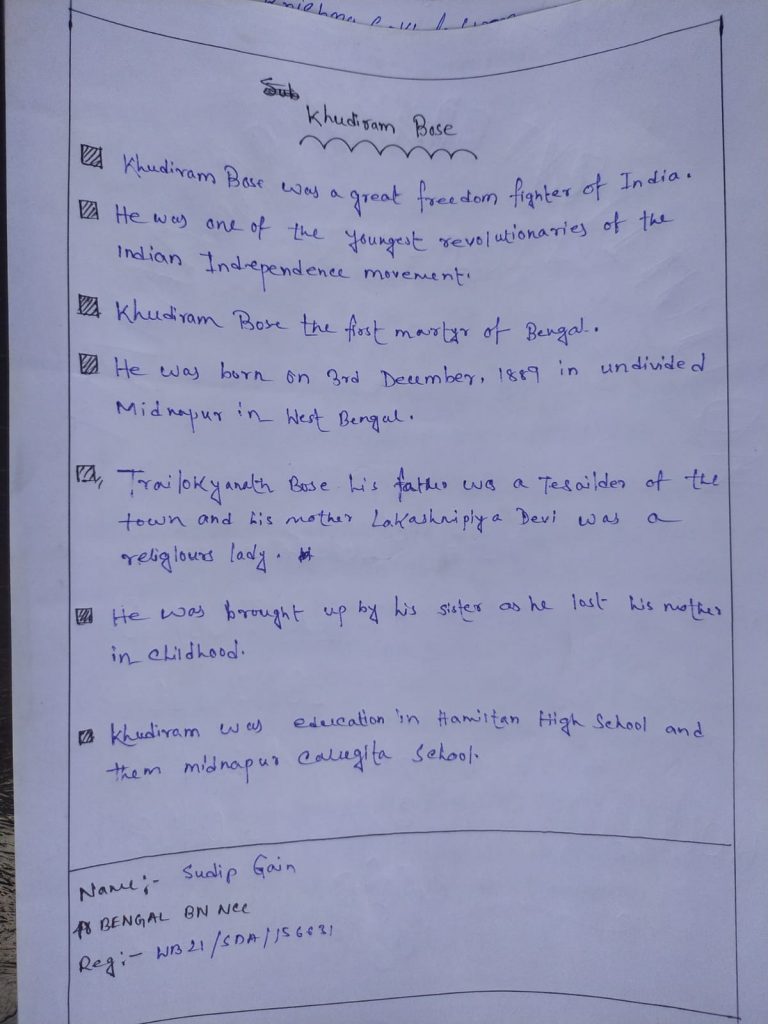 Khudiram Bose
Khudiram Bose was a great freedom fighter of India.
He was one of the youngest revolutionaries of the
Indian Independence movement.
Khudiram Bose the first martyr of Bengal.
He was born on 3rd December, 1889 in undivided
Midnapur in West Bengal.
Trailokyanath Bose his father was a Tesailder of the
town and his mother Lakashnipiya Devi was a
religlours lady.
He was brought up by his sister as he lost his mother
in childhood.
Khudiram was education in Hamiltan High School and
them midnapur School.
Name:- Sudip Gain
BENGAL BN NCC
Reg:- WB21/SDA/156831